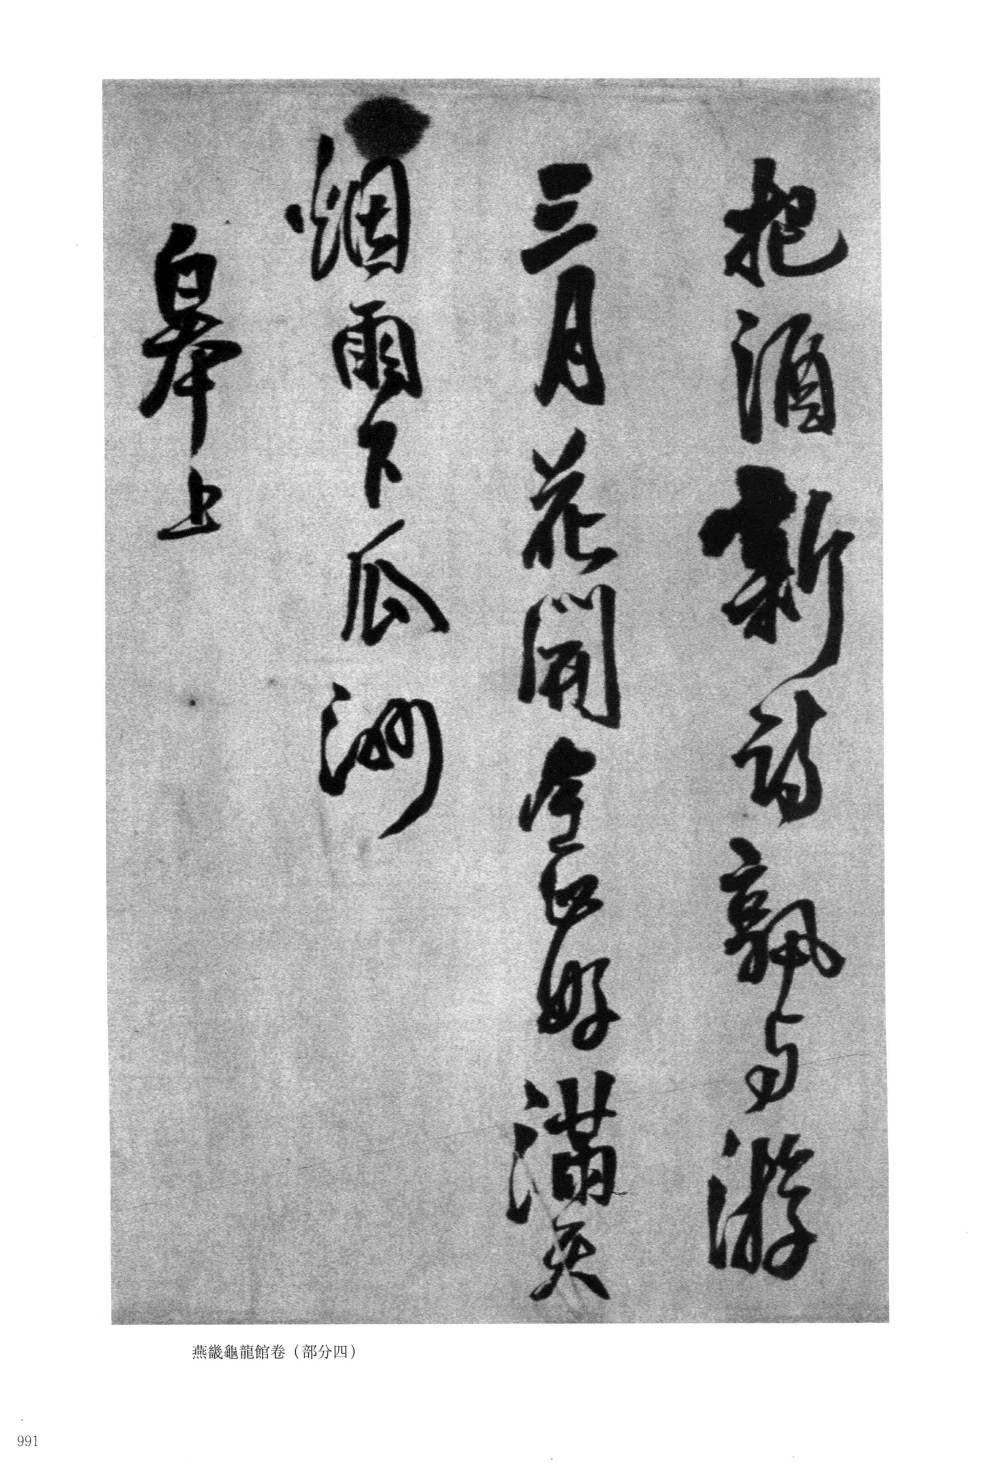 把酒新詩孰与游
三月花開金谷好滿天
烟雨下瓜洲
皋上
燕畿龜龍館卷（部分四）
991